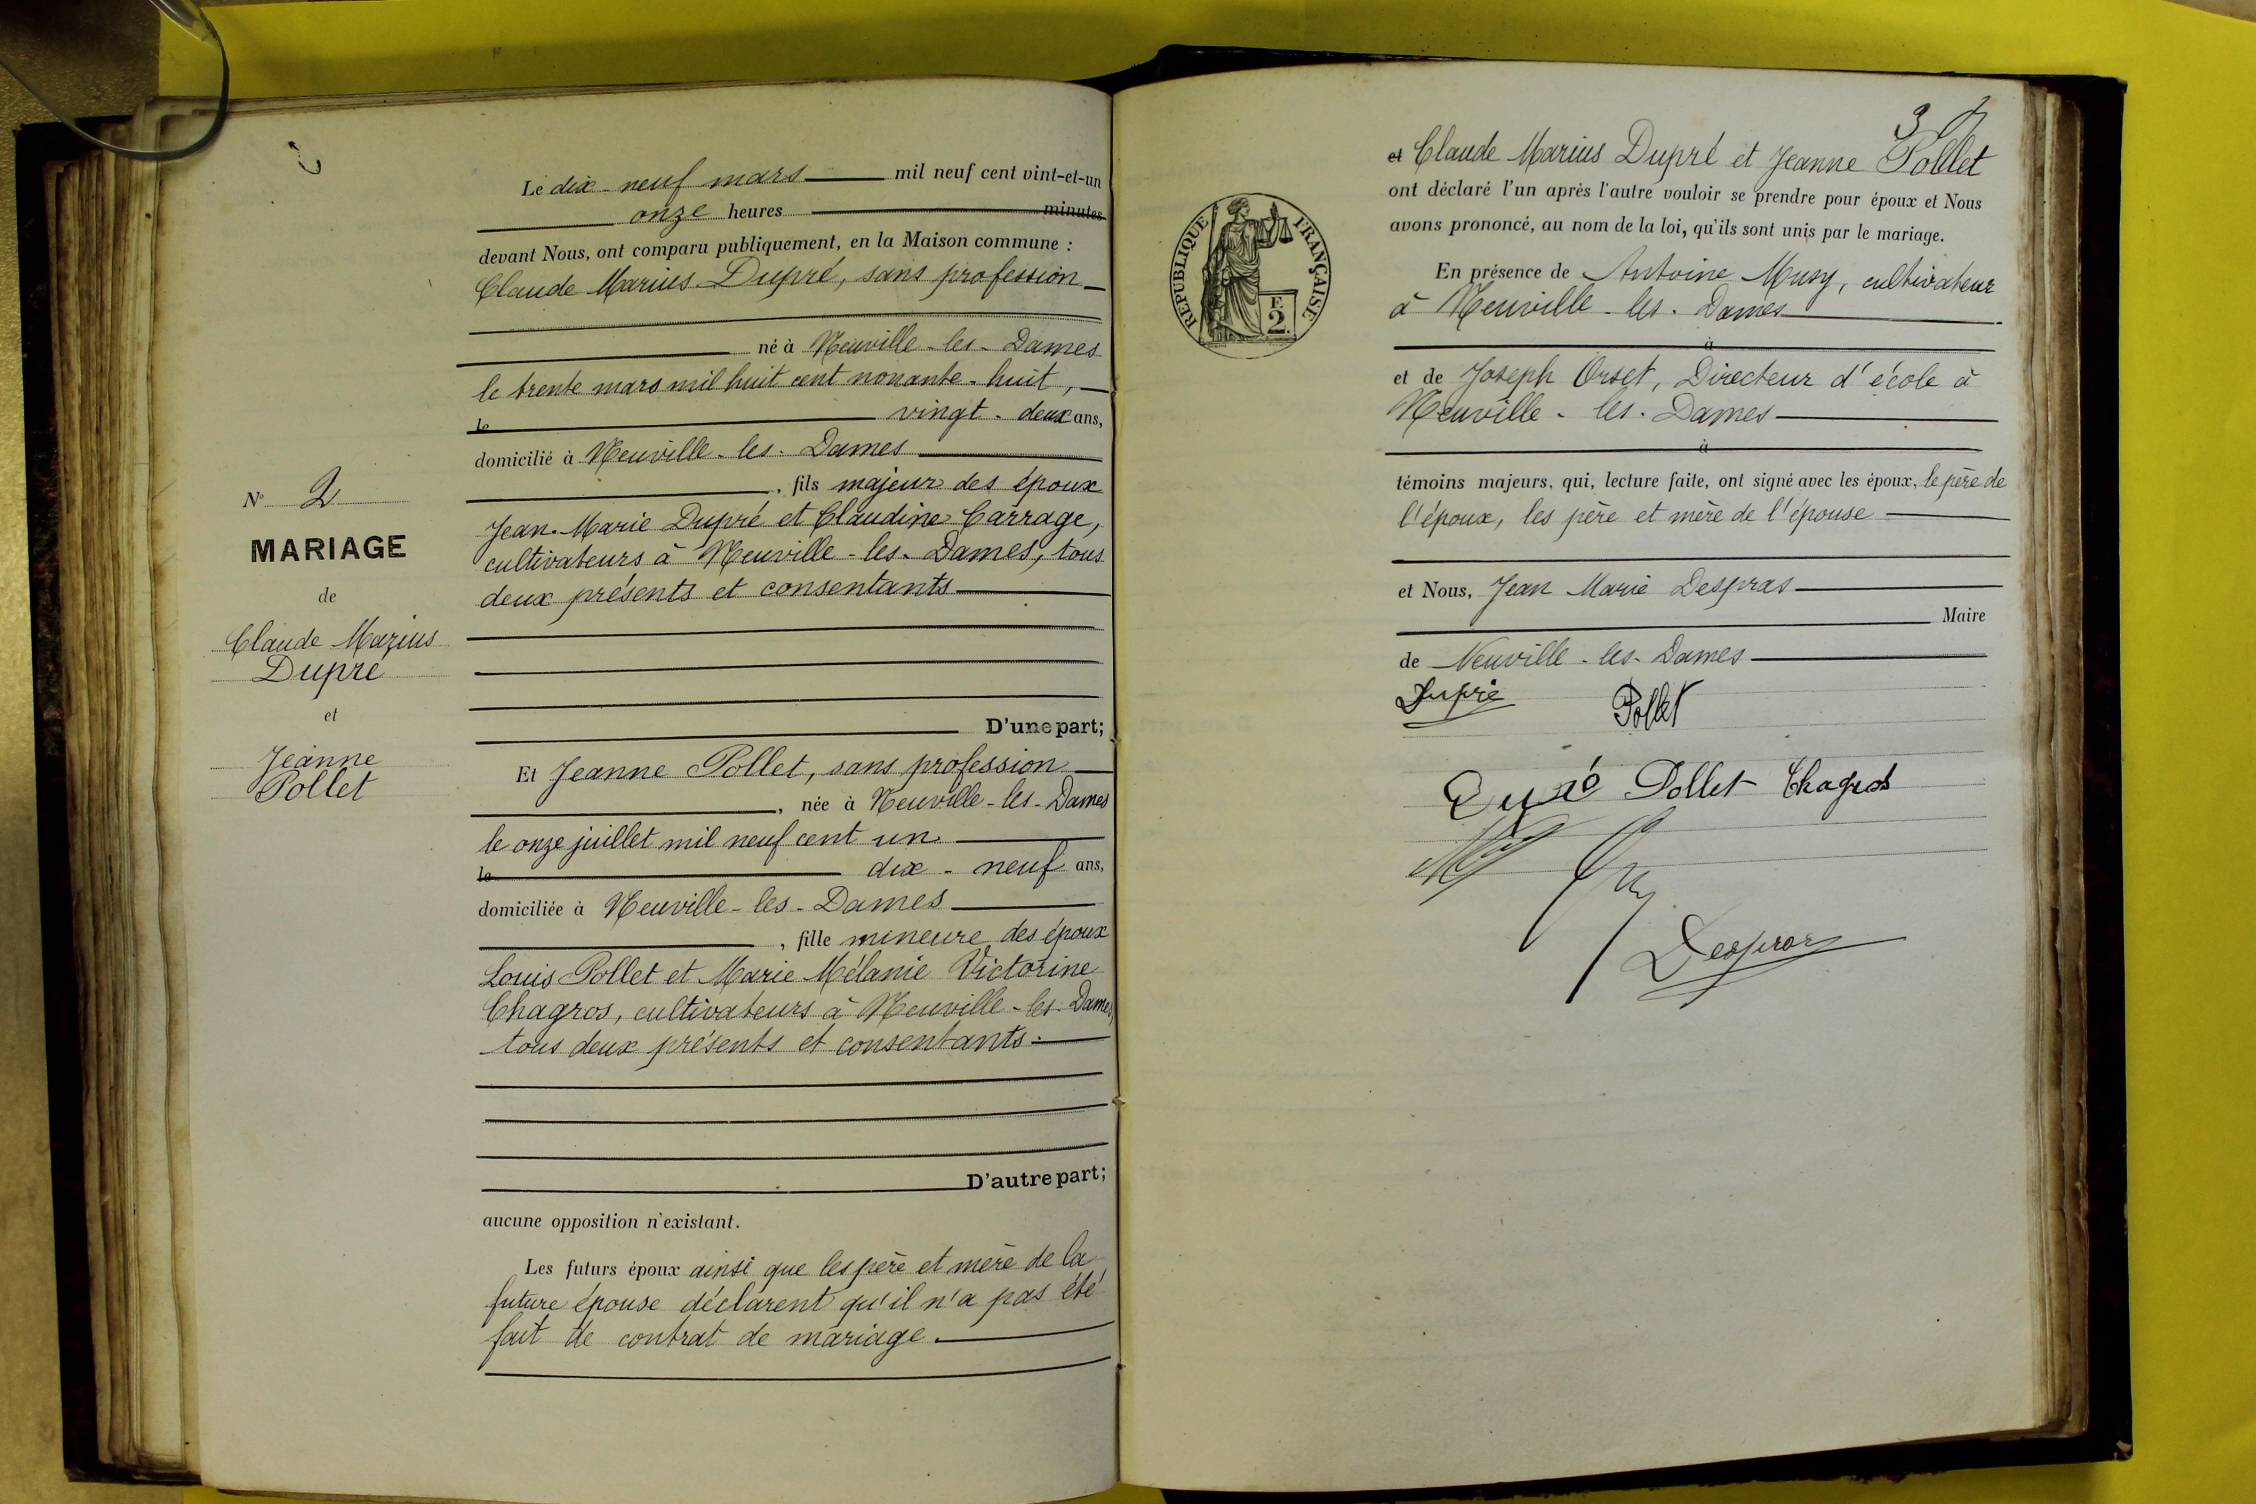 N° 2
MARIAGE
de
Claude Marius
Dupré
et
Jeanne
Pollet
Le dix-neuf mars mil neuf cent vint-et-un
onze heures minutes
devant Nous, ont comparu publiquement, en la Maison commune :
Claude Marius Dupré, sans profession
né à Neuville-les-Dames
le trente mars mil huit cent nonante-huit,
le vingt-deux ans,
domicilié à Neuville-les-Dames
, fils majeur des époux
Jean-Marie Dupré et Claudine Carrage,
cultivateurs à Neuville-les-Dames, tous
deux présents et consentants
D'une part;
Et Jeanne Pollet, sans profession
, née à Neuville-les-Dames
le onze juillet mil neuf cent un
le dix-neuf ans,
domiciliée à Neuville-les-Dames
, fille mineure des époux
Louis Pollet et Marie Mélanie Victorine
Chagros, cultivateurs à Neuville-les-Dames,
tous deux présents et consentants.
D'autre part;
aucune opposition n'existant.
Les futurs époux ainsi que les père et mère de la
future épouse déclarent qu'il n'a pas été
fait de contrat de mariage.
3
RÉPUBLIQUE FRANÇAISE
F.
2
et Claude Marius Dupré et Jeanne Pollet
ont déclaré l'un après l'autre vouloir se prendre pour époux et Nous
avons prononcé, au nom de la loi, qu'ils sont unis par le mariage.
En présence de Antoine Musy, cultivateur
à Neuville-les-Dames
à
et de Joseph Orset, Directeur d'école à
Neuville-les-Dames
à
témoins majeurs, qui, lecture faite, ont signé avec les époux, le père de
l'époux, les père et mère de l'épouse
et Nous, Jean Marie Despras
Maire
de Neuville-les-Dames
Dupré Pollet
Dupré Pollet Chagros
Despras